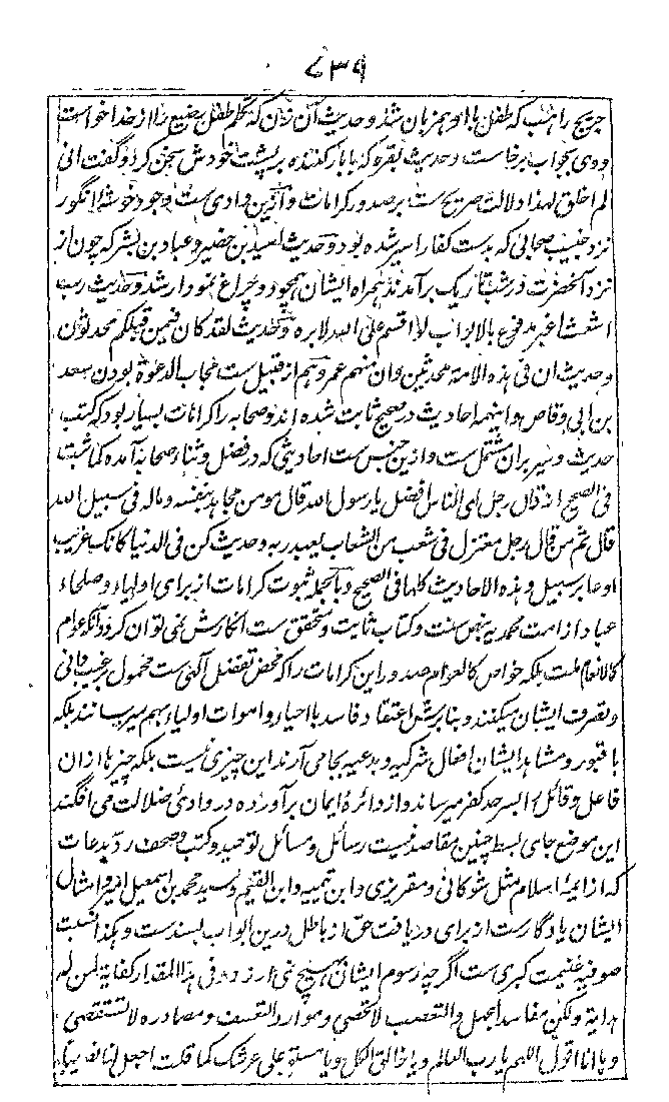 ۷۳۹
جریج راهب که طفل با او همزبان شد و حدیث آن زن که تکلم طفل رضیع را از خدا خواست
ووی بجواب برخاست و حدیث بقره که با بارکننده بر پشت خودش سخن کرد و گفت انی
لم اخلق لهذا دلالت صریح ست بر صدور کرامات و ازین وادی ست وجود خوشهٔ انگور
نزد خبیب صحابی که بدست کفار اسیر شده بود و حدیث اسید بن حضیر و عباد بن بشر که چون از
نزد آنحضرت در شب تاریک برآمدند همراه ایشان همچو دو چراغ نمودار شد و حدیث رب
اشعث اغبر مدفوع بالابواب لو اقسم علی الله لابره و حدیث لقد کان فیمن قبلکم محدثون
و حدیث ان فی هذه الامة محدثین وان منهم عمر و هم ازین قبیل ست مجاب الدعوة بودن سعد
بن ابی وقاص و اینهمه احادیث در صحیح ثابت شده اند و صحابه را کرامات بسیار بود که کتب
حدیث و سیر بران مشتمل ست و ازین جنس ست احادیثی که در فضل و ثناء صحابه آمده کما ثبت
فی الصحیح انه قال رجل ای الناس افضل یا رسول الله قال مومن مجاهد بنفسه و ماله فی سبیل الله
قال ثم من قال رجل معتزل فی شعب من الشعاب یعبد ربه و حدیث کن فی الدنیا کانک غریب
او عابر سبیل و هذه الاحادیث کلها فی الصحیح و بالجمله ثبوت کرامات از برای اولیاء و صلحاء
عباد از امت محمدیه بنص سنت و کتاب ثابت و متحقق ست انکارش نمی توان کرد و آنکه عوام
کالانعام ملت بلکه خواص کالعوام صدور این کرامات را که محض تفضل آلهی ست محمول بر غیب دانی
و تصرف ایشان میکنند و بنابرش اعتقاد فاسد با احیاء و اموات اولیاء بهم میرسانند بلکه
با قبور و مشاهد ایشان افعال شرکیه و بدعیه بجا می آرند این چیزی نیست بلکه چیزها ازان
فاعل و قائل را بسرحد کفر میرساند و از دائرهٔ ایمان برآورده در وادی ضلالت می افگند
این موضع جای بسط چنین مقاصد نیست رسائل و مسائل توحید و کتب و صحف رد بدعات
که از ائمهٔ اسلام مثل شوکانی و مقریزی و ابن تیمیه و ابن القیم و سید محمد بن اسمعیل امیر و امثال
ایشان یادگارست از برای دریافت حق از باطل درین ابواب بسندست و هکذا نسبت
صوفیه غنیمت کبری ست اگرچه رسوم ایشان بهیچ نمی ارزد و فی هذا المقدار کفایة لمن له
هدایة ولکن مفاسد الجهل و التعصب لا تحصی و موارد التعسف و مصادره لا تستقصی
و ها انا اقول اللهم یا رب العالم و یا خالق الکل و یا مستو علی عرشک کما قلت اجعل لنا